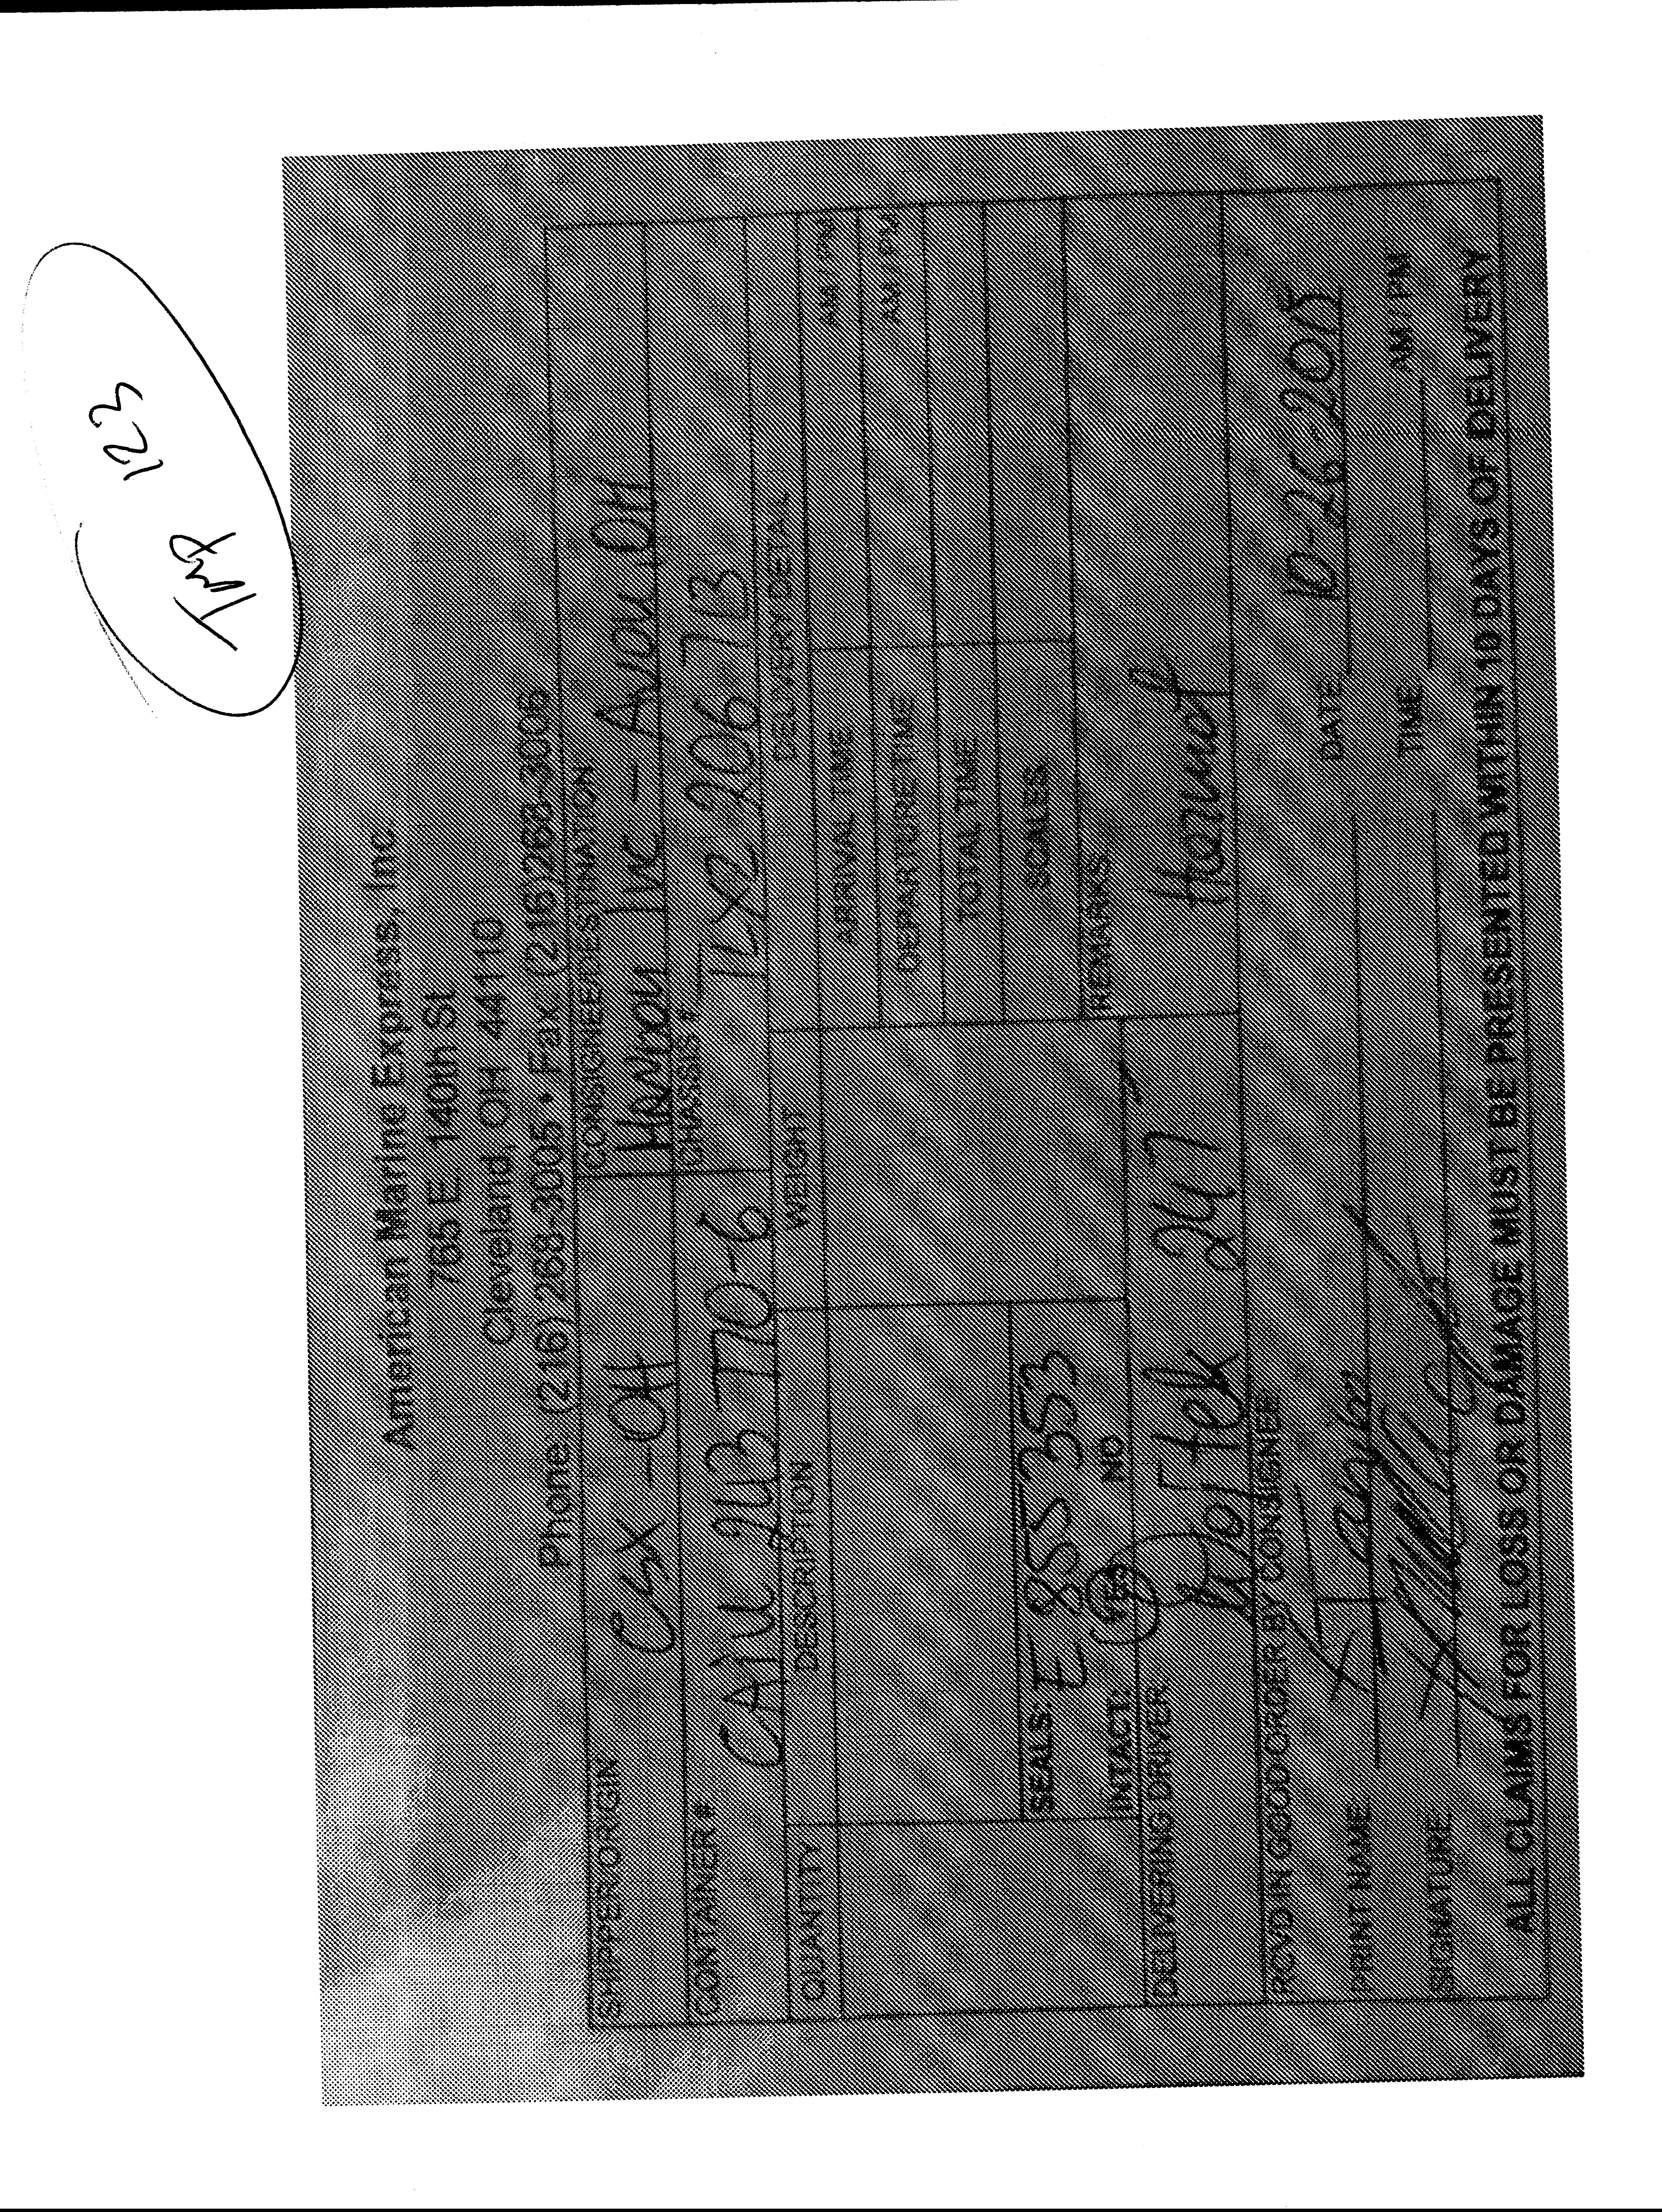 123
American Marine Express, Inc.
765 E. 140th St
Cleveland, OH 44110
Phone: (216) 268-3005 • Fax: (216)268-3006
SHIPPER/ORGIN CONSIGNEE/DESTINATION
CSX - OH Hanon Inc - Avon OH
CONTAINER # CHASSIS#
CAIU 2113 770-6 206 713
QUANTITY DESCRIPTION WEIGHT DELIVERY DETAIL
ARRIVAL TIME AM / PM
DEPARTURE TIME AM / PM
TOTAL TIME
SCALES
SEALS: 855353
INTACT: YES NO
REMARKS:
DELIVERING DRIVER
RCVD IN GOOD ORDER BY CONSIGNEE
PRINT NAME: DATE: 10-26-2015
SIGNATURE: TIME: AM / PM
ALL CLAIMS FOR LOSS OR DAMAGE MUST BE PRESENTED WITHIN 10 DAYS OF DELIVERY